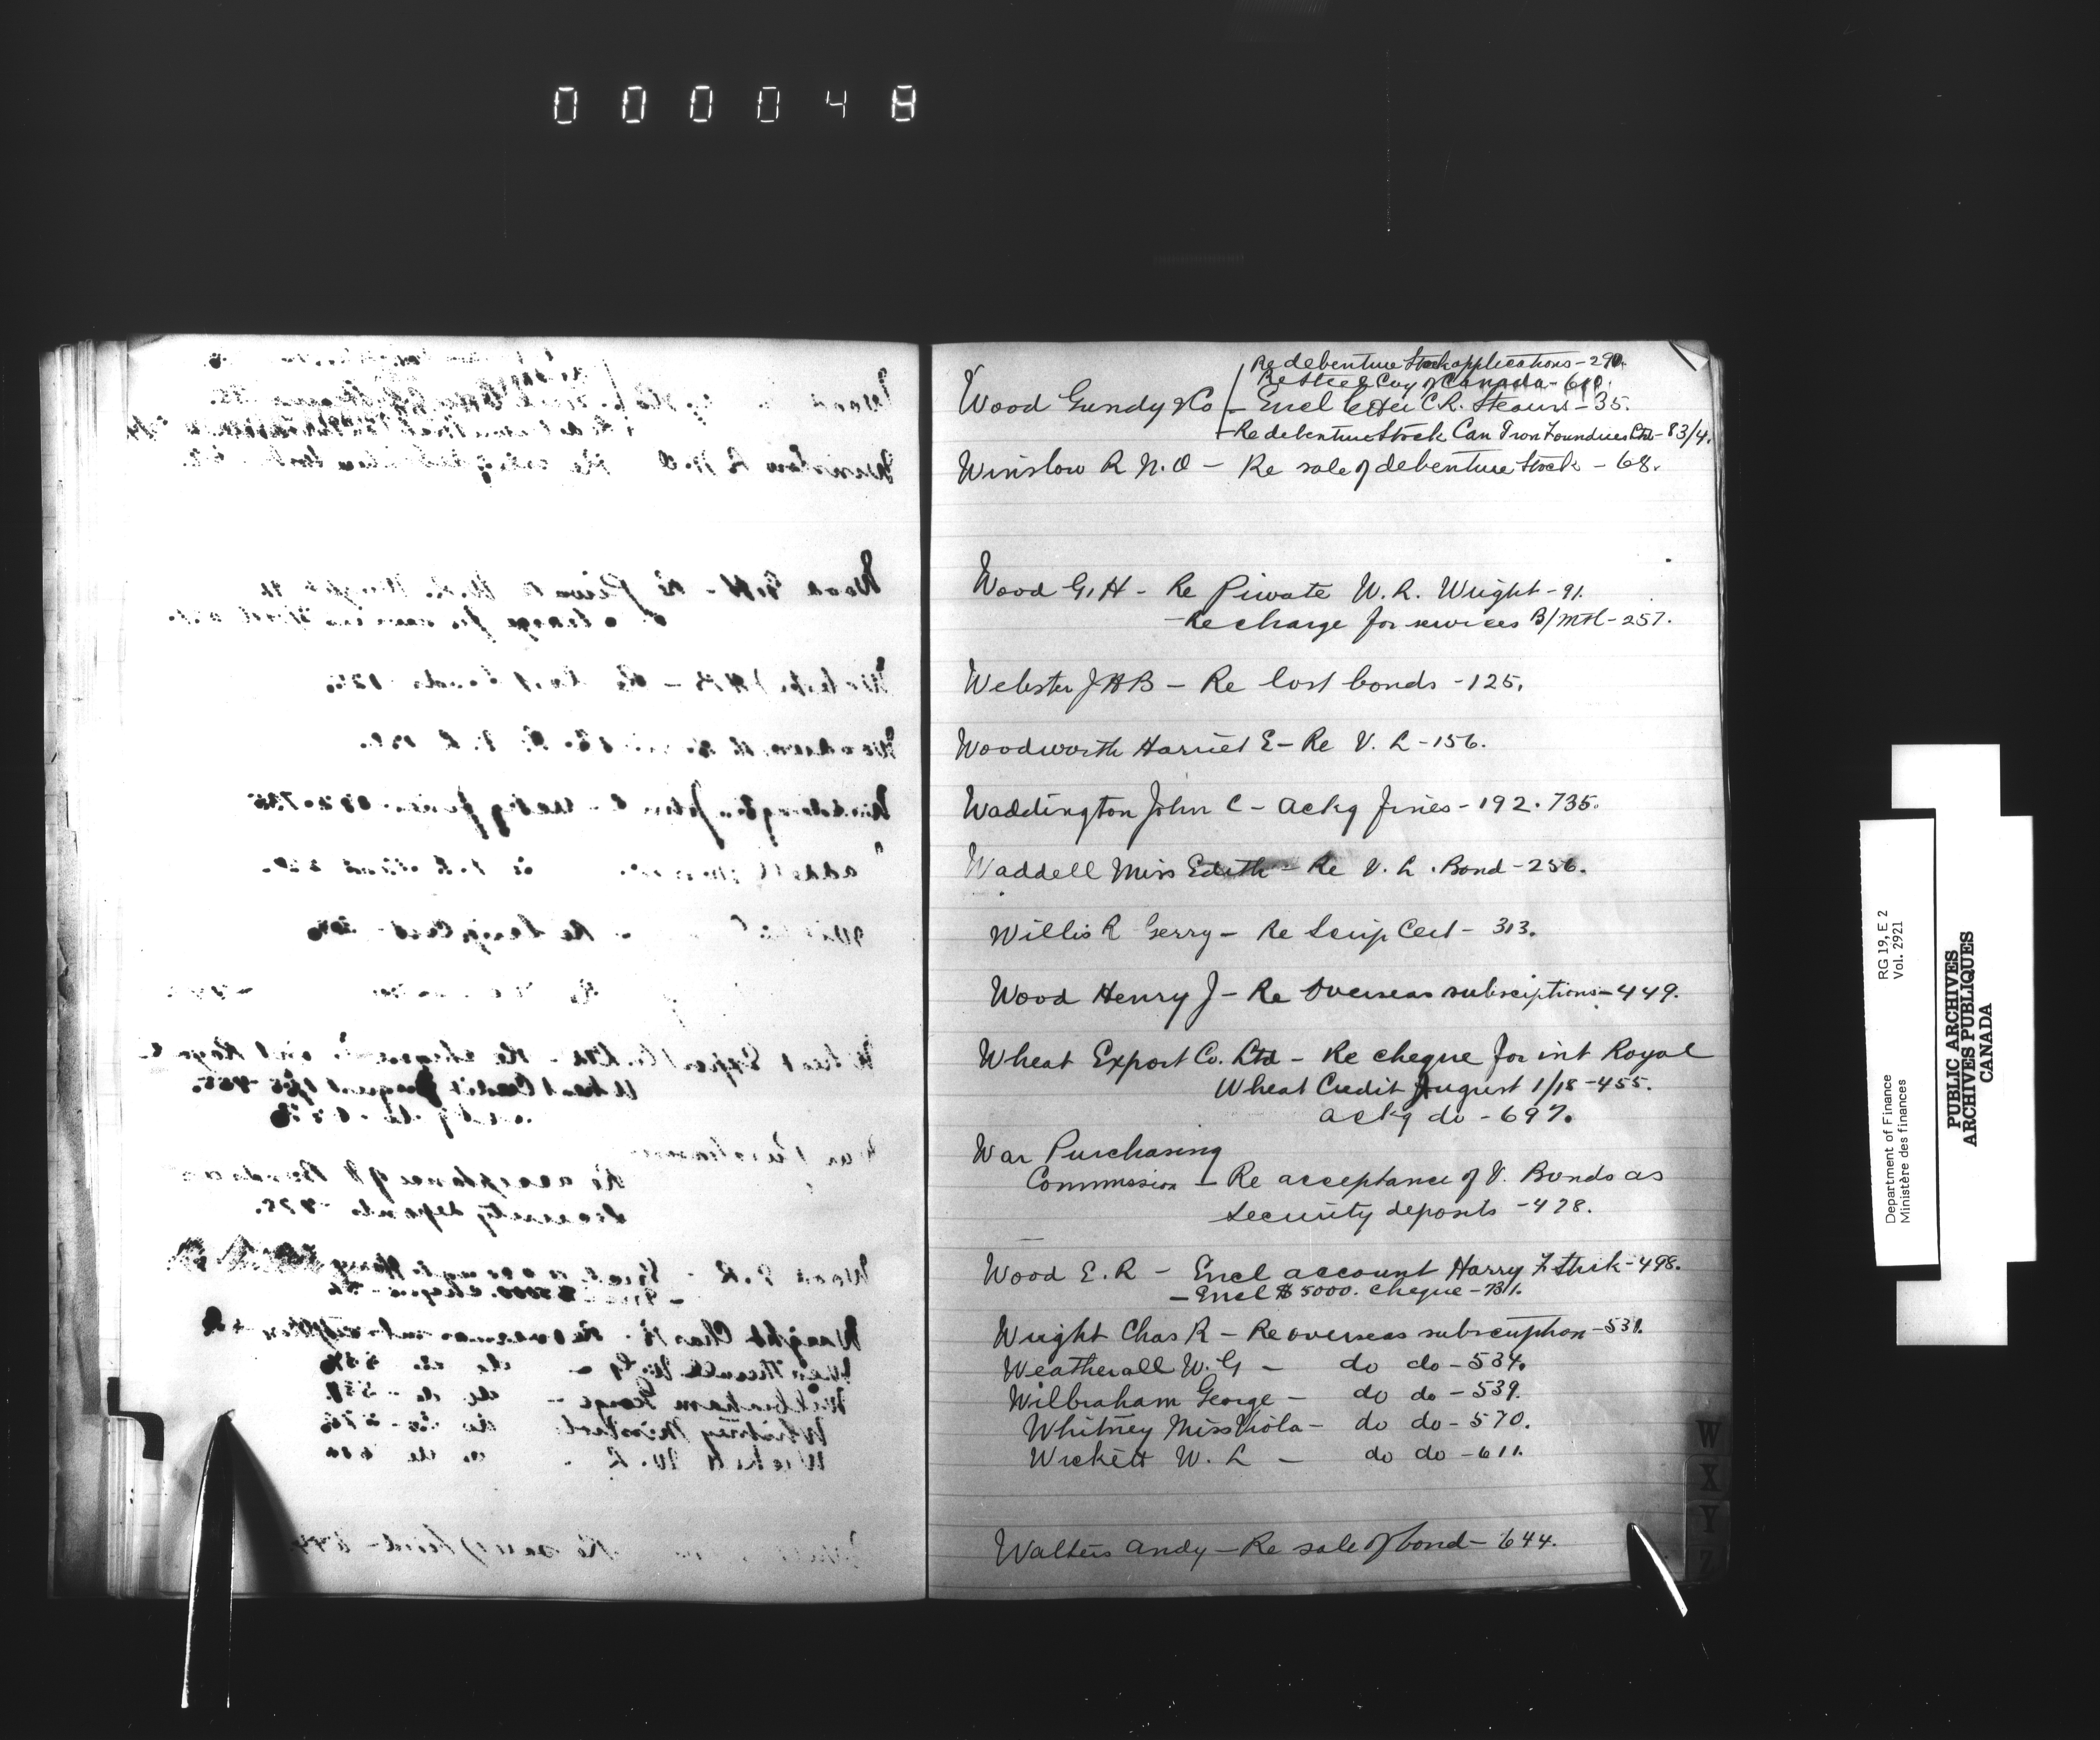 000048
Re debenture Stock applications - 290.
Re Steel Coy of Canada - 610.
Wood Gundy & Co - Encl letter C.R. Stearns - 35.
- Re debenture Stock Can Iron Foundries Ltd - 83/4.
Winslow R N.O - Re sale of debenture stock - 68.
Wood G.H - Re Private W. R. Wright - 91.
- Re charge for services B/Mtl - 257.
Webster J H B - Re lost bonds - 125.
Woodworth Harriet E - Re V. L - 156.
Waddington John C - ackg fines - 192. 735.
Waddell Miss Edith - Re V. L. Bond - 256.
Willis R Gerry - Re Scrip Cert - 313.
Wood Henry J - Re Overseas subscriptions - 449.
Wheat Export Co. Ltd - Re cheque for int Royal
Wheat Credit August 1/18 - 455.
ackg do - 697.
War Purchasing
Commission - Re acceptance of V. Bonds as
Security deposits - 478.
Wood E. R - Encl account Harry F - 498.
- Encl $5000. cheque - 731.
Wright Chas R - Re overseas subscription - 531.
Weatherall W. G - do do - 534.
Wilbraham George - do do - 539.
Whitney Miss Viola - do do - 570.
Wickett W. L - do do - 611.
Walters Andy - Re sale of bond - 644.
W
X
Y
Z
Department of Finance RG 19, E 2
Ministère des finances Vol. 2921
PUBLIC ARCHIVES
ARCHIVES PUBLIQUES
CANADA